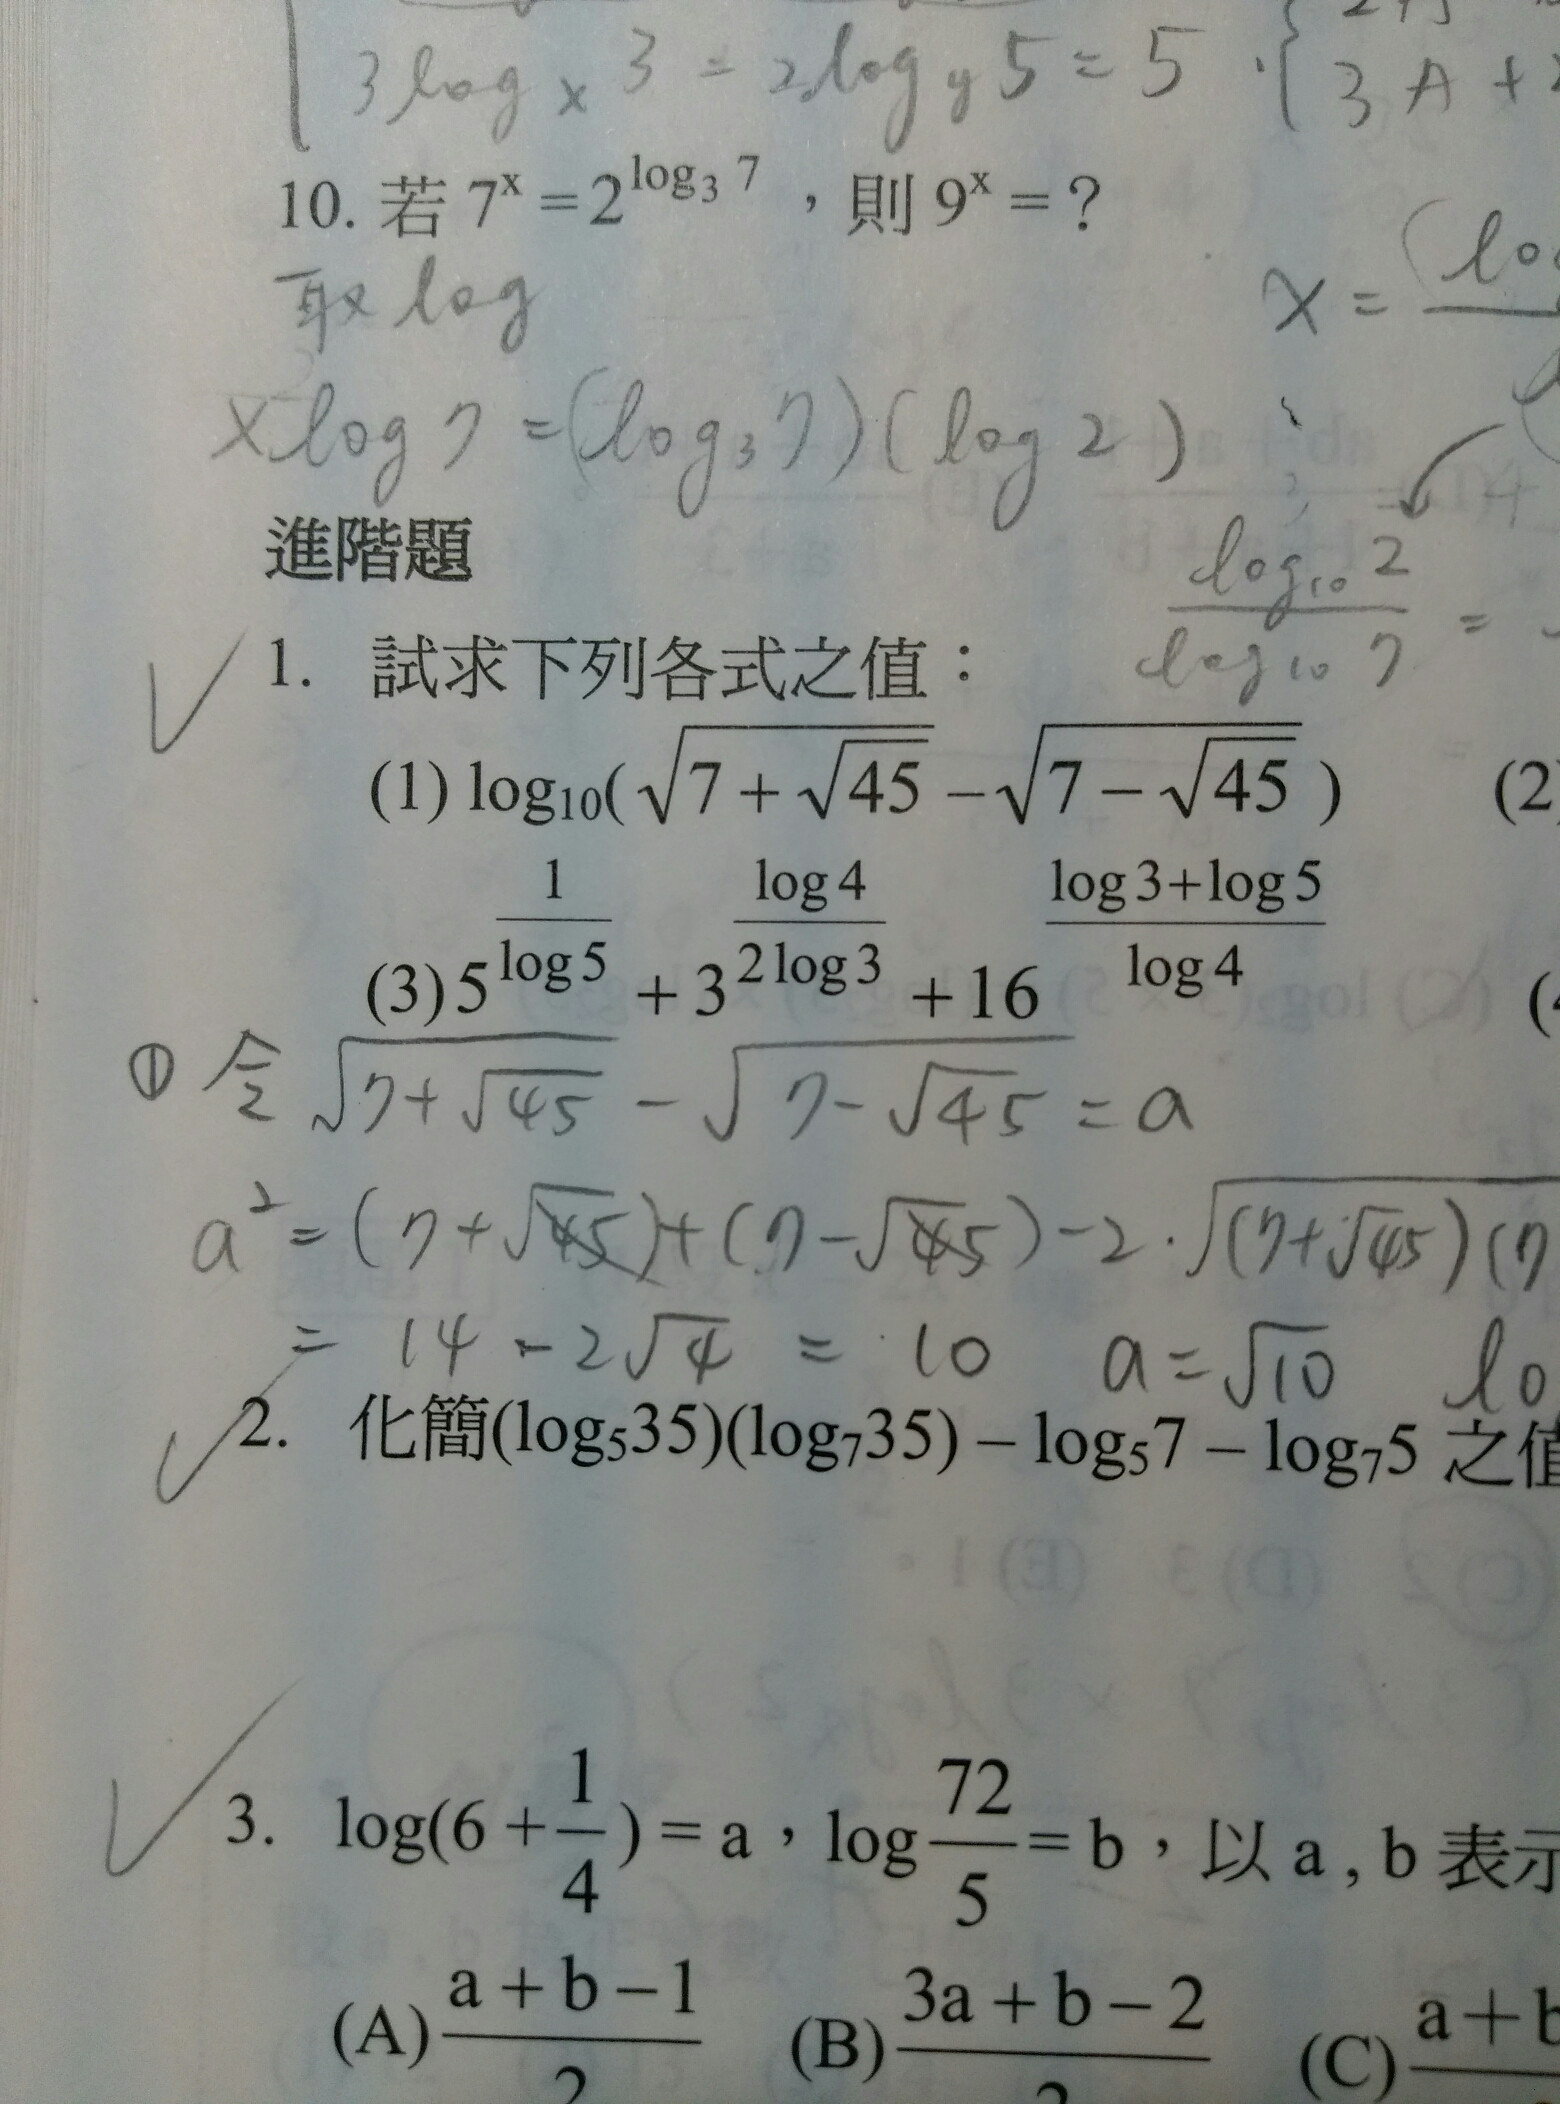 3 log x 3 = 2 log y 5 = 5
3A +
10. 若 7^x = 2^{log₃ 7} ，則 9^x = ?
取 log
x =
x log 7 = (log₃ 7)(log 2)
進階題
log₁₀ 2 / log₁₀ 7 =
1. 試求下列各式之值：
(1) log₁₀(√(7 + √45) − √(7 − √45)) (2)
(3) 5^{1/log 5} + 3^{log 4/(2 log 3)} + 16^{(log 3 + log 5)/log 4}
① 令 √(7+√45) − √(7−√45) = a
a² = (7+√45)+(7−√45) −2·√(7+√45)(7
= 14 − 2√4 = 10 a = √10 lo
2. 化簡(log₅35)(log₇35) − log₅7 − log₇5 之值
3. log(6 + 1/4) = a，log 72/5 = b，以 a , b 表示
(A) (a + b − 1)/2 (B) (3a + b − 2)/ (C) a + b